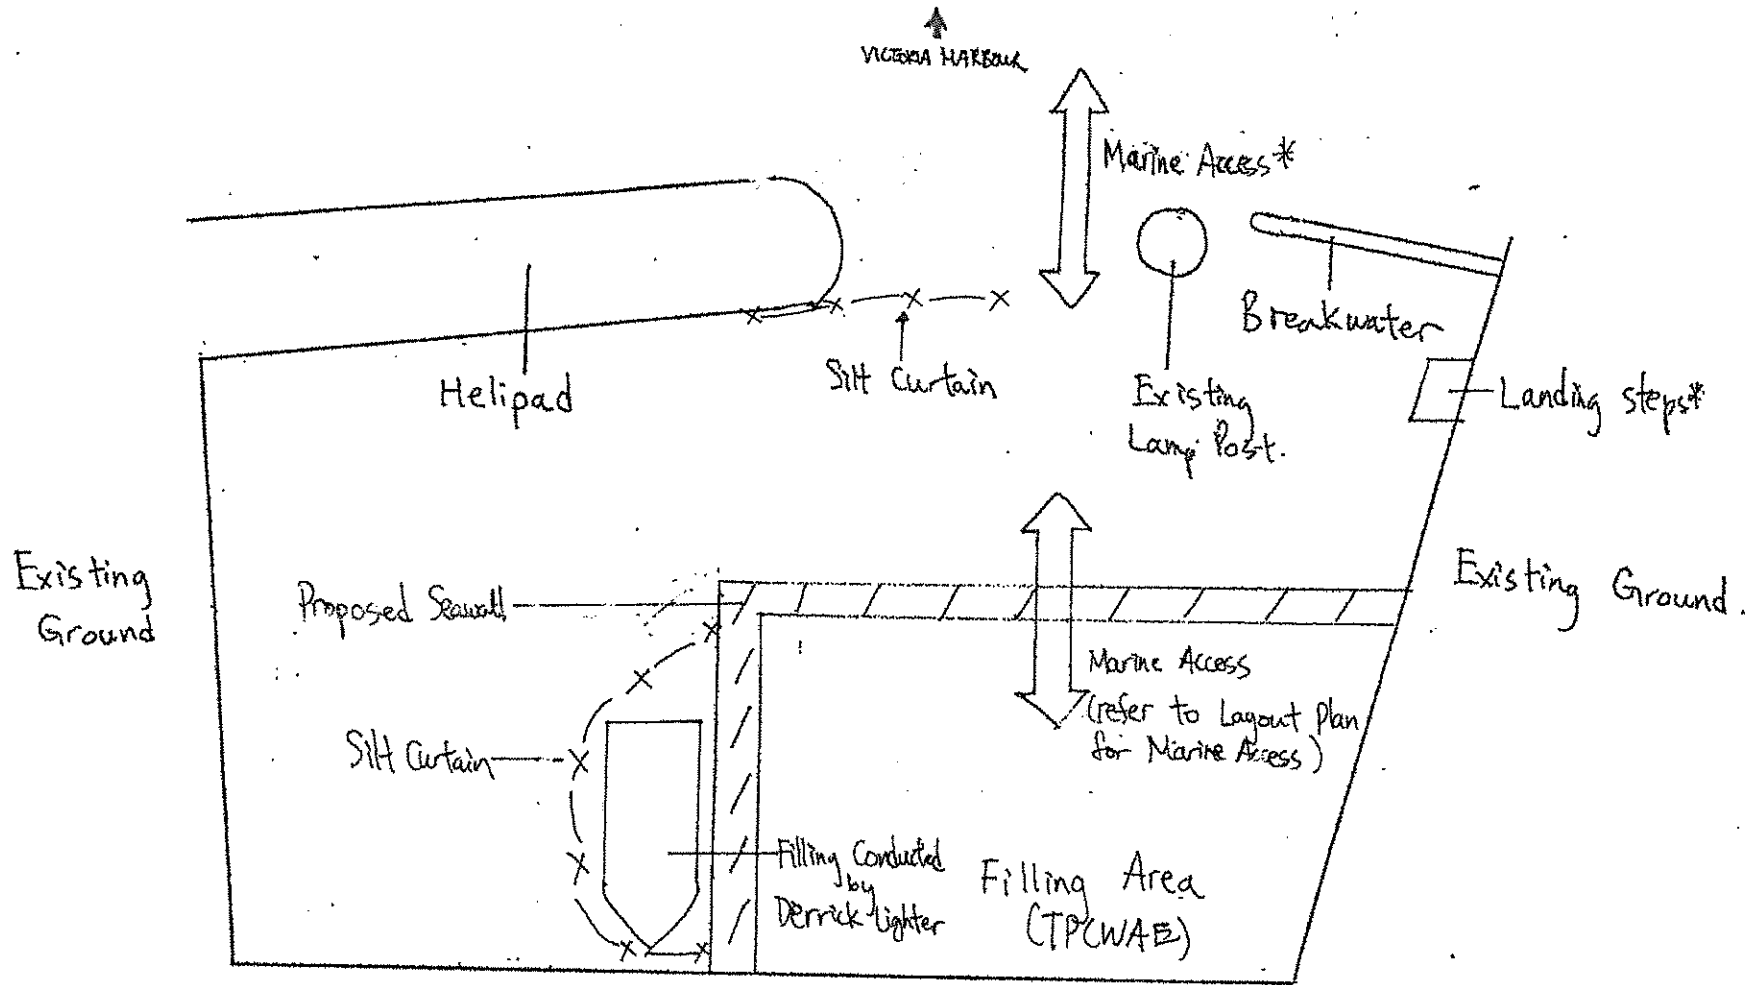 VICTORIA HARBOUR
Marine Access*
Breakwater
Helipad
Silt Curtain
Existing
Lamp Post.
Landing steps*
Existing
Ground
Proposed Seawall
Existing Ground.
Marine Access
(refer to Layout Plan
for Marine Access)
Silt Curtain
Filling Conducted
by
Derrick Lighter
Filling Area
(TPCWAE)